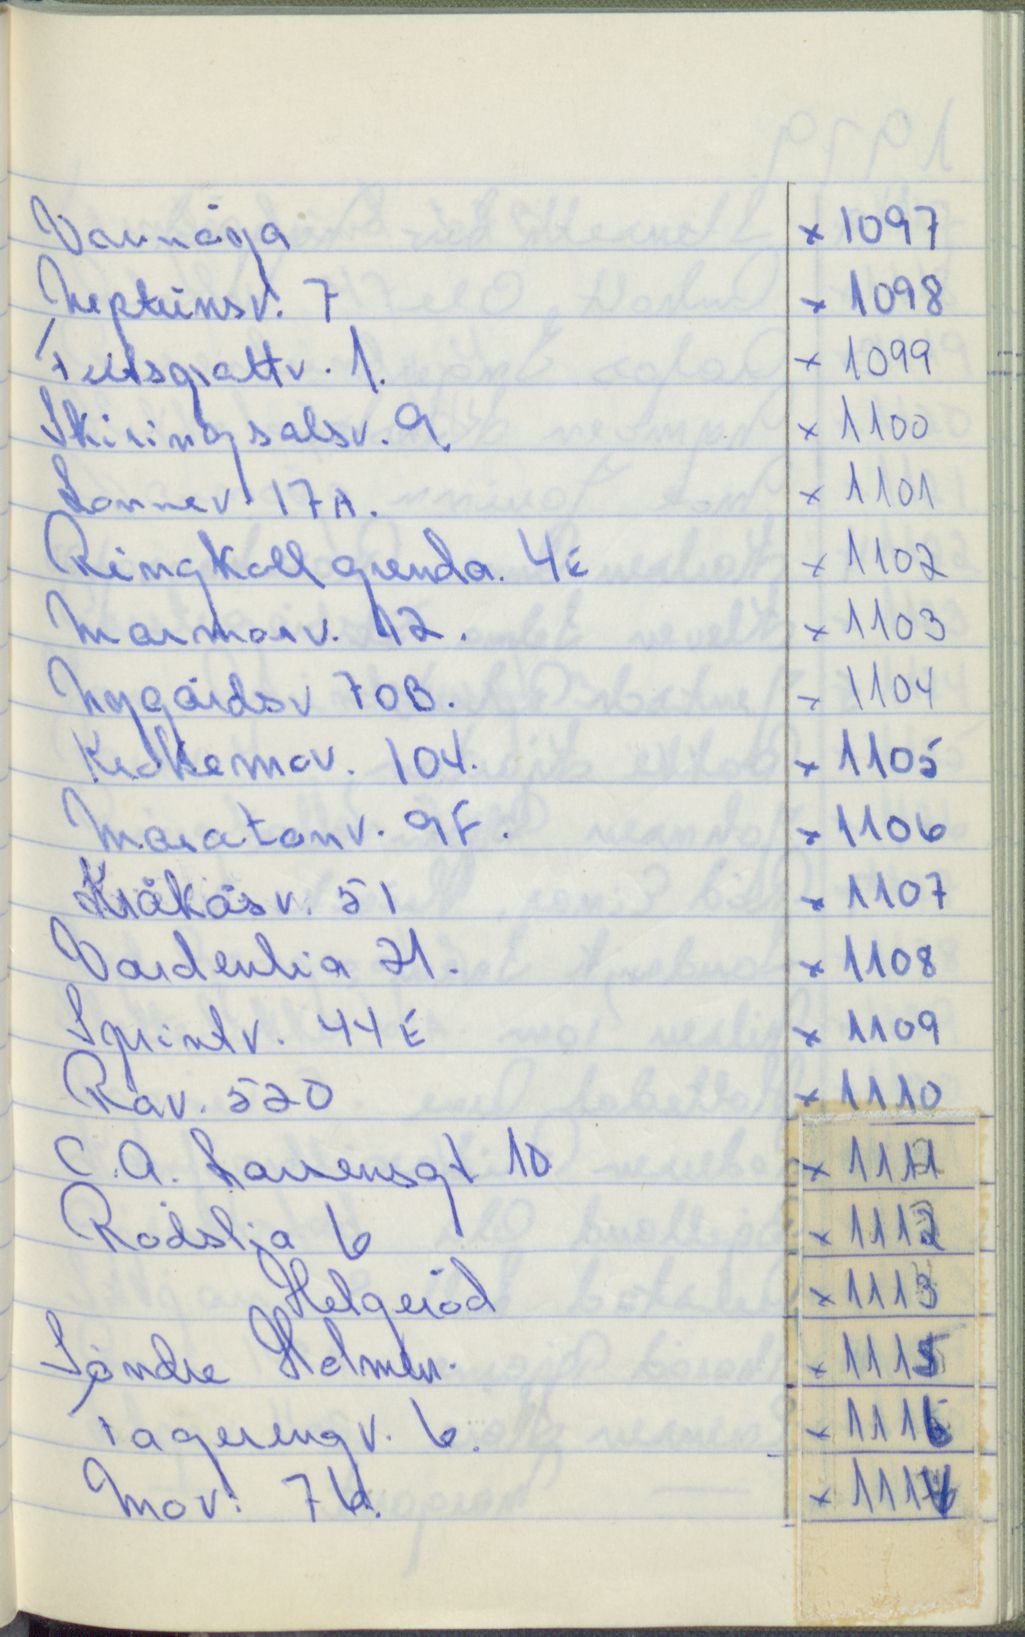 Varnåga × 1097
Neptunsv. 7 × 1098
Feltspattv. 1. × 1099
Skiringsalsv. 9. × 1100
Lønnev. 17A. × 1101
Ringkollgrenda. 4E × 1102
Marmorv. 12. × 1103
Nygårdsv 70B. × 1104
Krokemov. 104. × 1105
Maratonv. 9F. × 1106
Kråkåsv. 51 × 1107
Vardenlia 21. × 1108
Sprintv. 44E × 1109
Rav. 520 × 1110
C.A. Larsensgt 10 × 1111
Rødslia 6 × 1112
Helgerød × 1113
Søndre Holmen. × 1115
Fagerengv. 6. × 1116
Mov. 76. ×